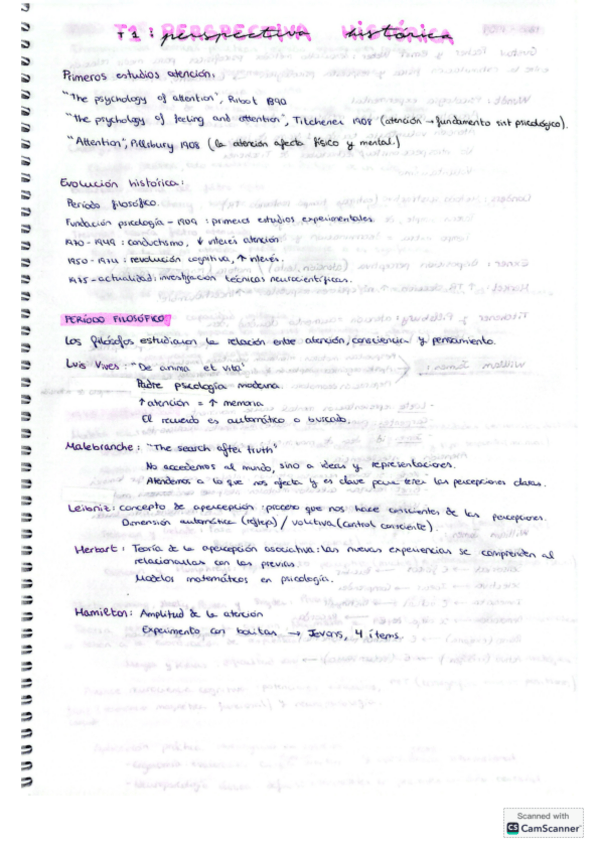 T1: perspectiva histórica
Primeros estudios atención:
"The psychology of attention", Ribot 1890
"The psychology of feeling and attention", Titchener 1908 (atención → fundamento sist psicológico).
"Attention", Pillsbury 1908 (la atención afecta físico y mental.)
Evolución histórica:
Período filosófico.
Fundación psicología - 1909: primeros estudios experimentales.
1910 - 1949: conductismo, ↓ interés atención
: revolución cognitiva, ↑ interés.
- actualidad: investigación técnicas neurocientíficas.
PERÍODO FILOSÓFICO
Los filósofos estudiaron la relación entre atención, consciencia y pensamiento.
Luis Vives: "De anima et vita"
Padre psicología moderna.
↑ atención = ↑ memoria
El recuerdo es automático o buscado.
Malebranche: "The search after truth"
No accedemos al mundo, sino a ideas y representaciones.
Atendemos a lo que nos afecta y es clave para tener las percepciones claras.
Leibniz: concepto de apercepción: proceso que nos hace conscientes de las percepciones.
Dimensión automática (reflejo) / volutiva (control consciente).
Herbart: Teoría de la apercepción asociativa: las nuevas experiencias se comprenden al
relacionarlas con las previas.
Modelos matemáticos en psicología.
Hamilton: Amplitud de la atención
Experimento con bolitas → Jevons, 4 ítems.
Scanned with
CS CamScanner